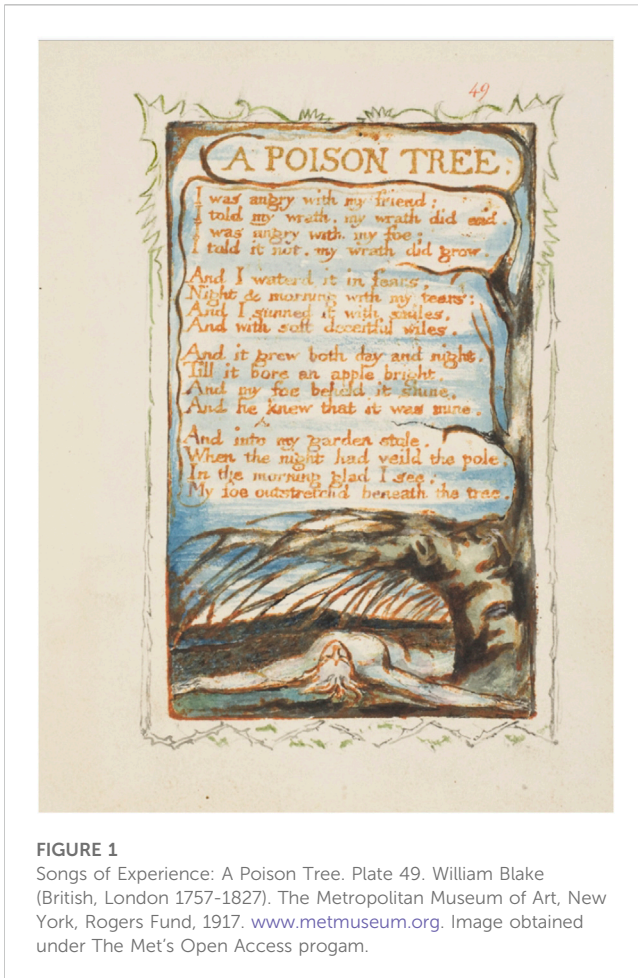 49
A POISON TREE.
I was angry with my friend;
I told my wrath, my wrath did end.
I was angry with my foe:
I told it not, my wrath did grow.
And I waterd it in fears,
Night & morning with my tears:
And I sunned it with smiles,
And with soft deceitful wiles.
And it grew both day and night.
Till it bore an apple bright.
And my foe beheld it shine,
And he knew that it was mine.
And into my garden stole.
When the night had veild the pole;
In the morning glad I see,
My foe outstretchd beneath the tree.
FIGURE 1
Songs of Experience: A Poison Tree. Plate 49. William Blake
(British, London 1757-1827). The Metropolitan Museum of Art, New
York, Rogers Fund, 1917. www.metmuseum.org. Image obtained
under The Met's Open Access progam.